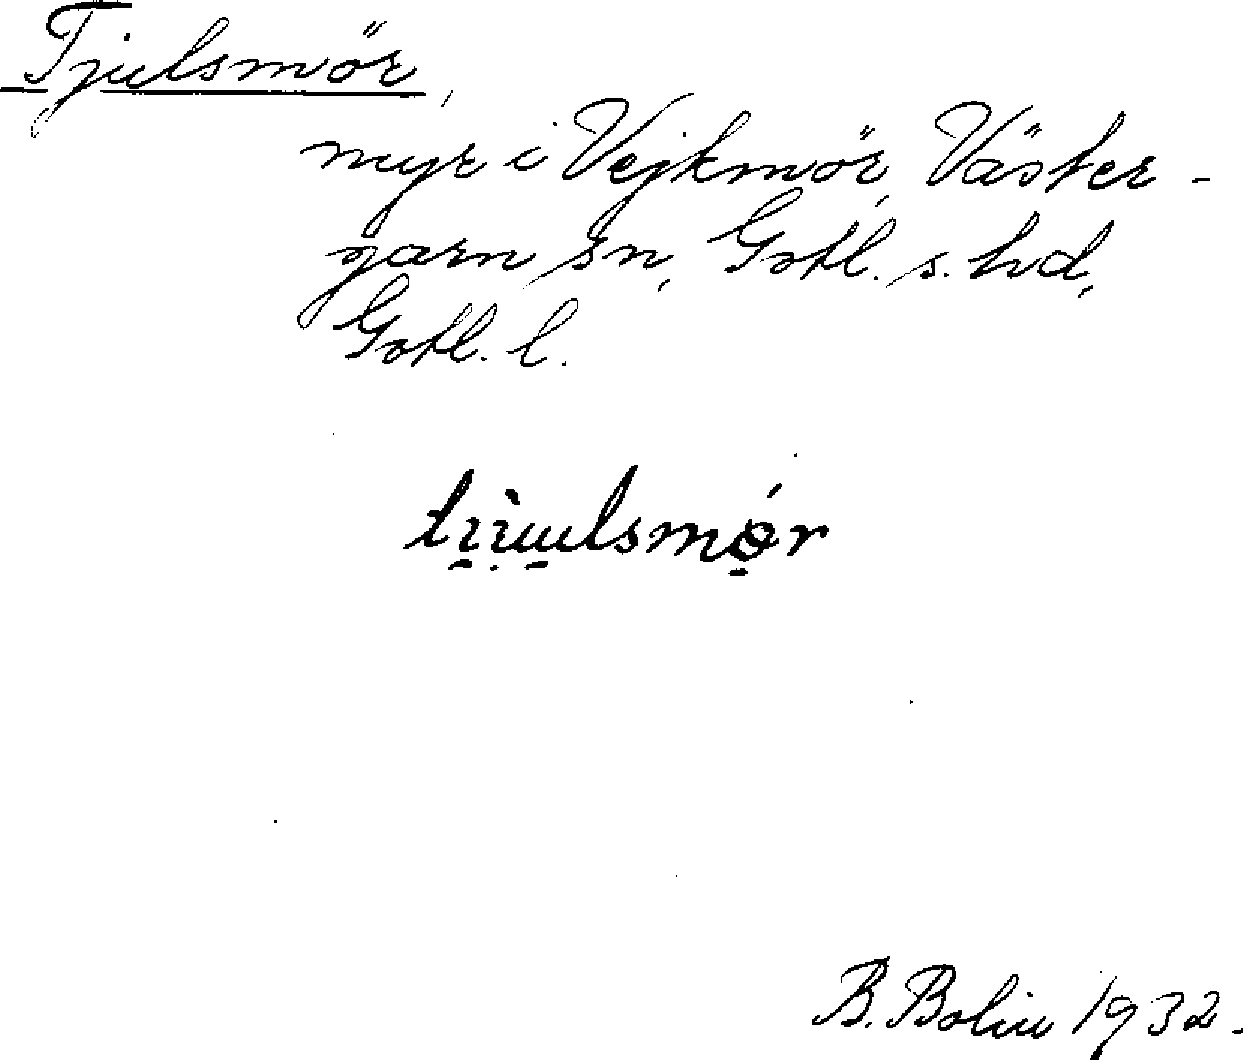 Tjulsmör,
myr i Vejkmör, Väster-
garn sn, Gotl. s. hd,
Gotl. l.
B. Bolin 1932.